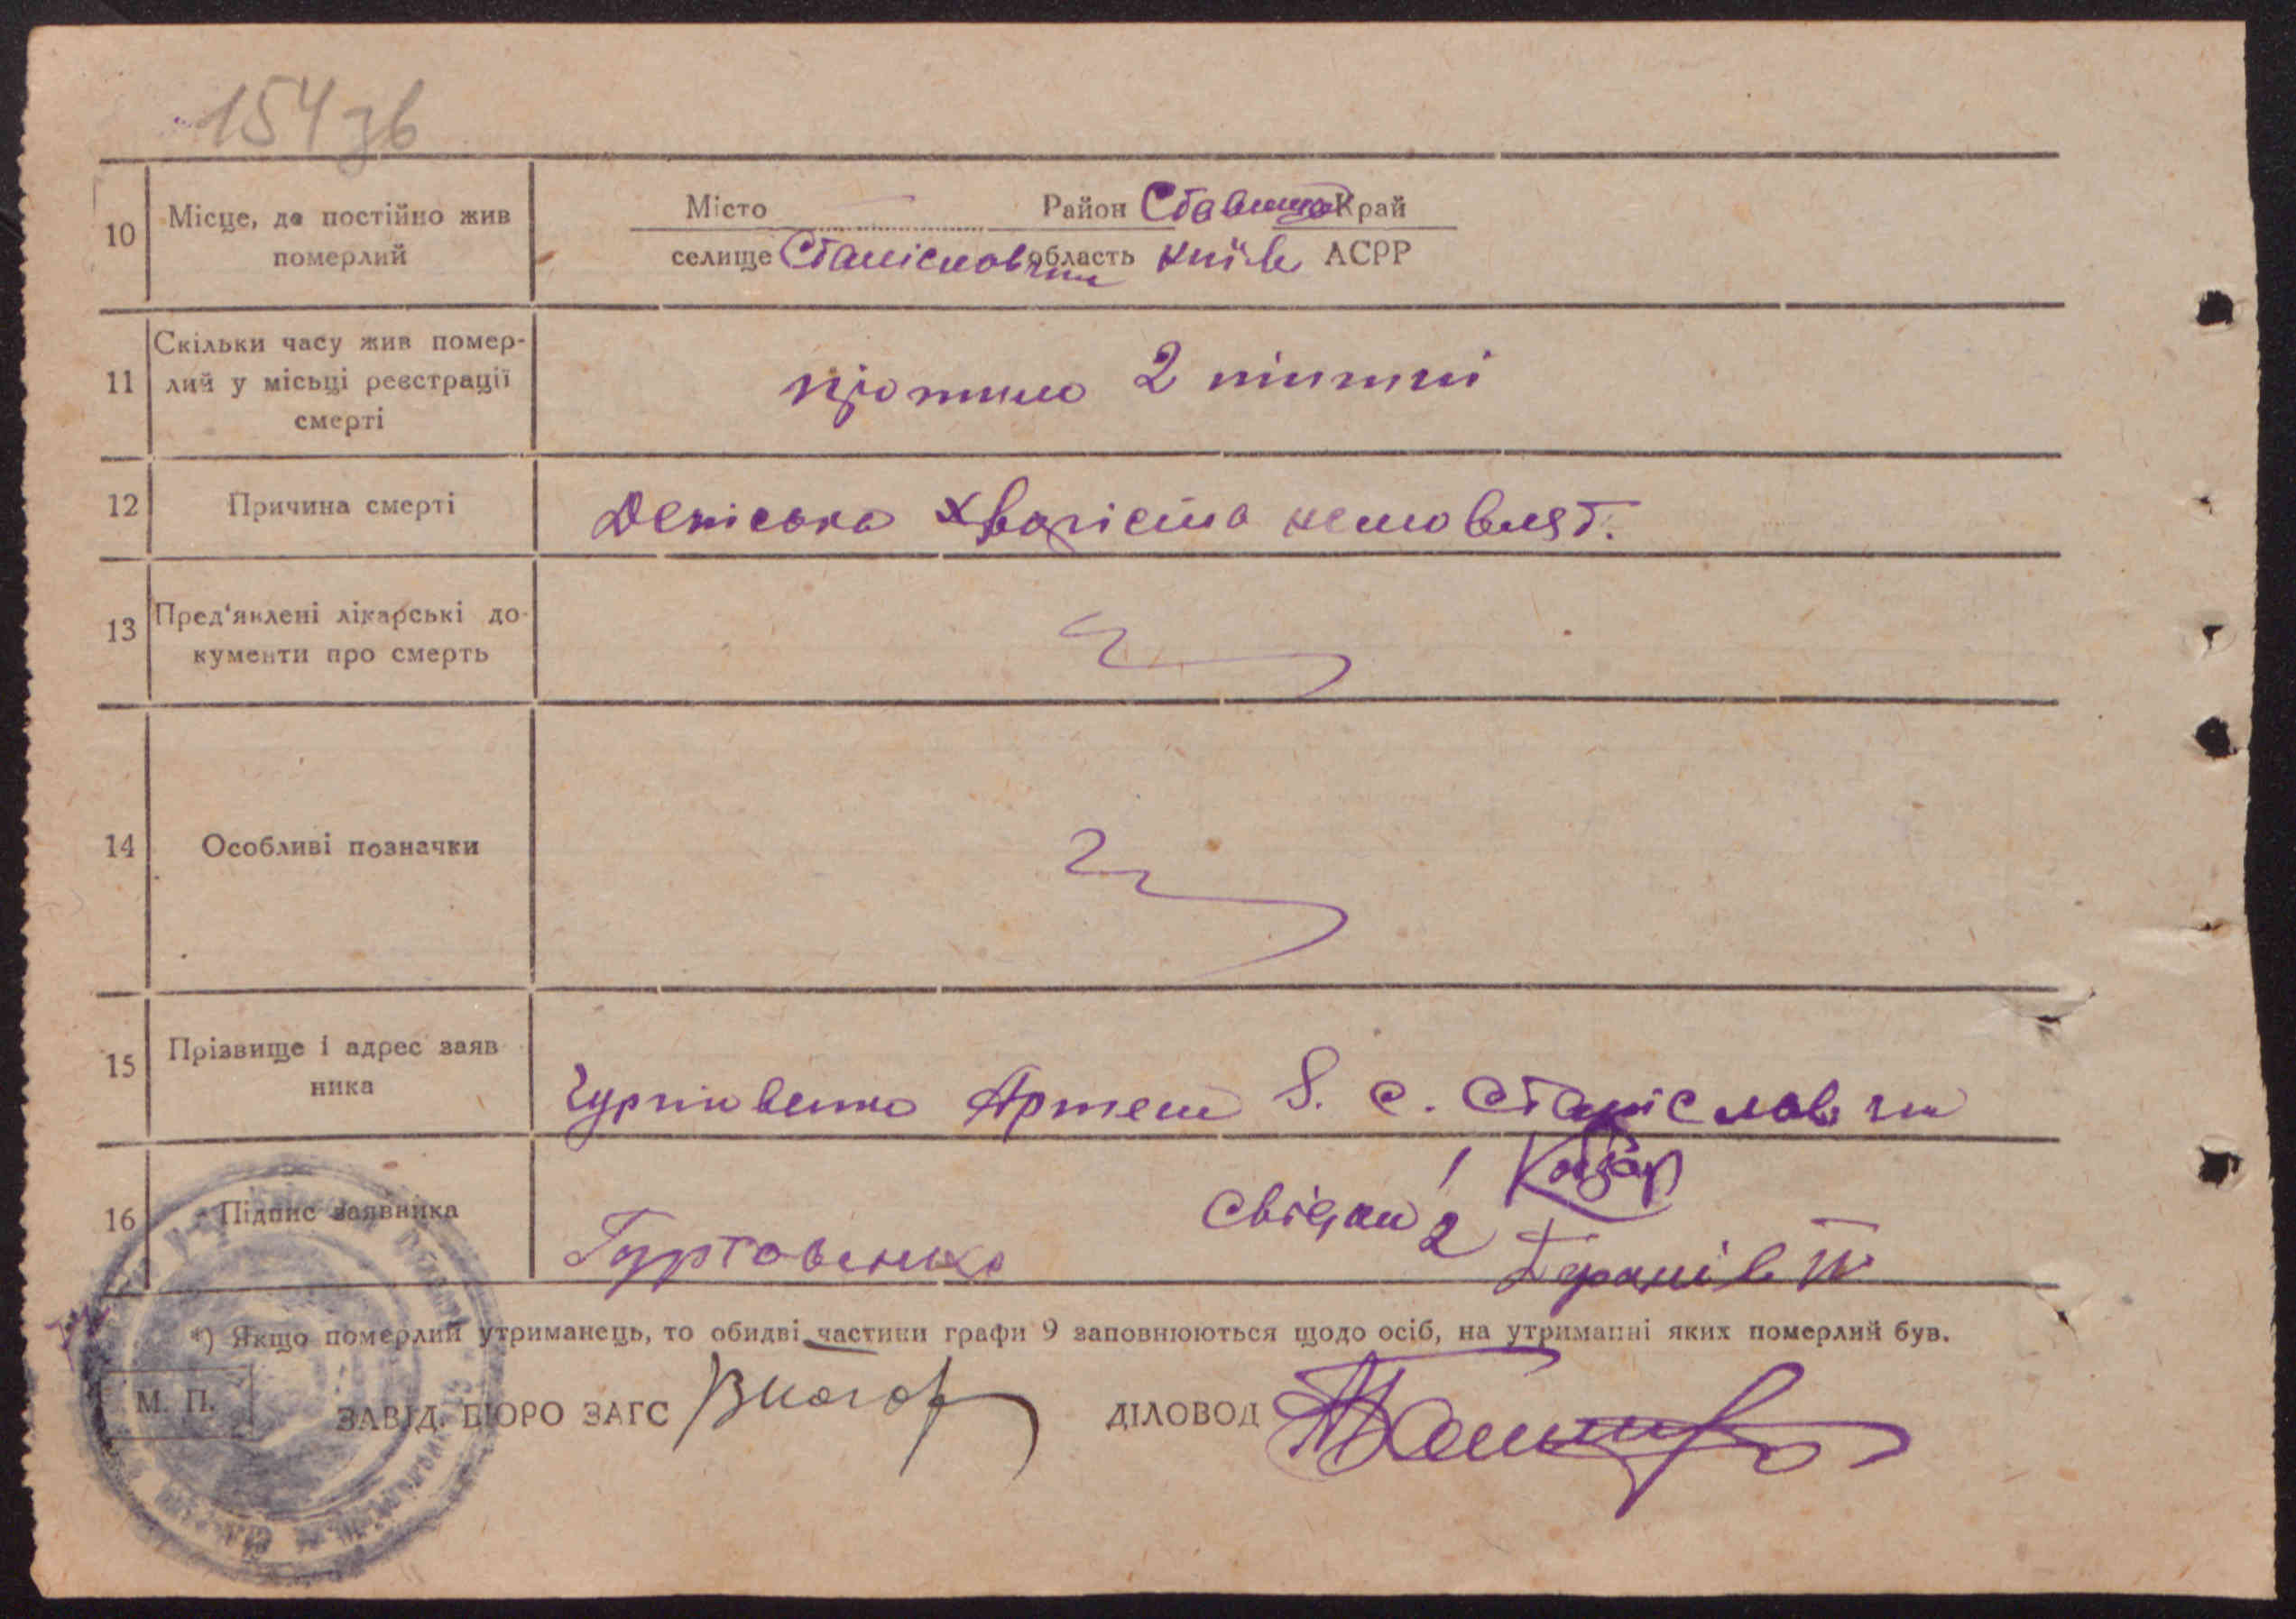 154 зв
10 Місце, де постійно жив Місто Район Ставищ Край
померлий селище Станіславчик область Київ АСРР
Скільки часу жив помер-
11 лий у місьці реєстрації прожило 2
смерті
12 Причина смерті Деніська хворієта немовлят.
13 Пред'явлені лікарські до-
кументи про смерть
14 Особливі позначки
15 Прізвище і адрес заяв
ника Гуртовенко Артем с. Станіславчи
16 Підпис заявника Гуртовенко Свідки 1 Кобзар
2
*) Якщо померлий утриманець, то обидві частини графи 9 заповнюються щодо осіб, на утриманні яких померлий був.
М. П. ЗАВІД. БЮРО ЗАГС ДІЛОВОД